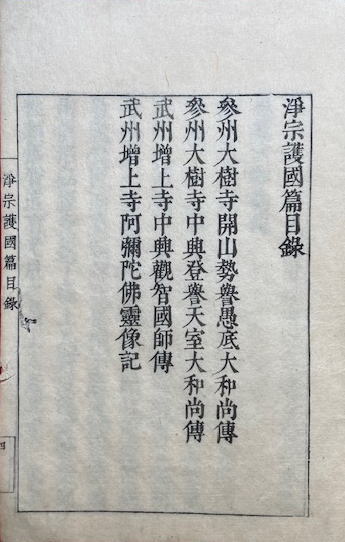 淨宗護國篇目錄
參州大樹寺開山勢譽愚底大和尚傳
參州大樹寺中興登譽天室大和尚傳
武州增上寺中興觀智國師傳
武州增上寺阿彌陀佛靈像記
淨宗護國篇目錄
四